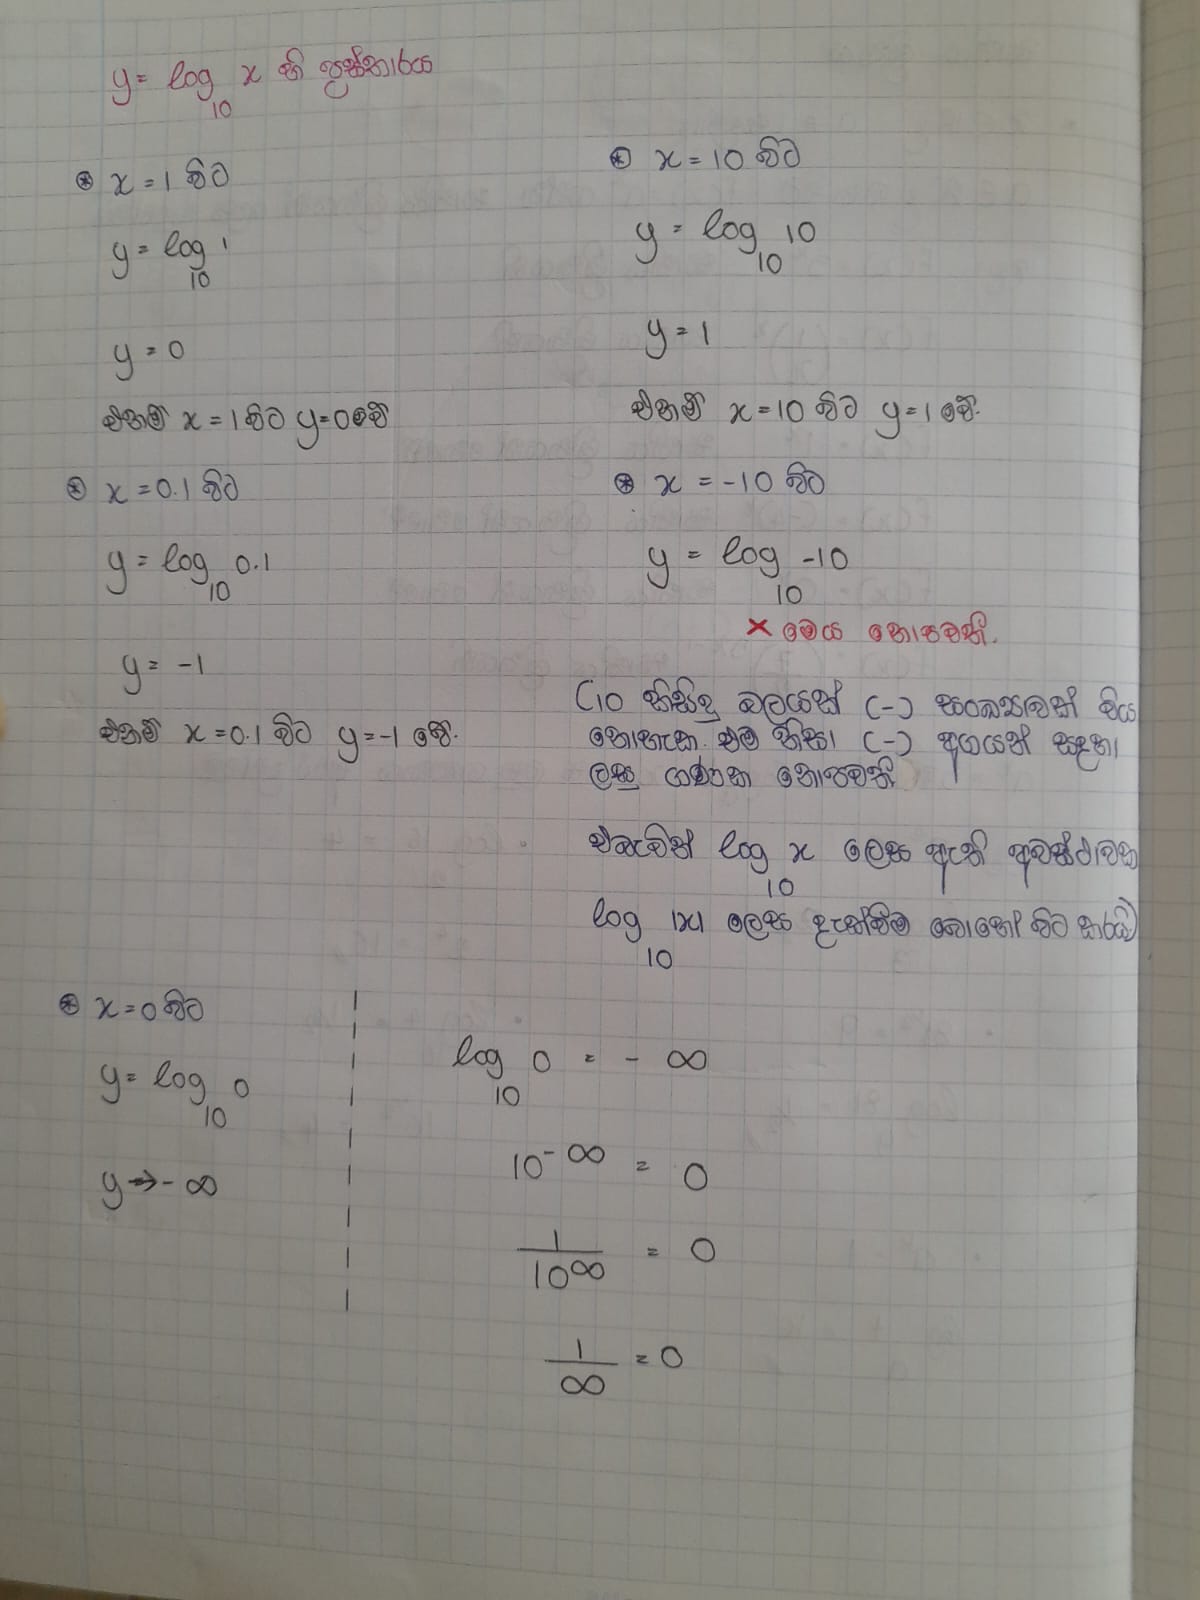 y = log₁₀ x හි ප්‍රස්තාරය
⊛ x = 1 විට
y = log₁₀ 1
y = 0
එනම් x = 1 විට y = 0 වේ
⊛ x = 10 විට
y = log₁₀ 10
y = 1
එනම් x = 10 විට y = 1 වේ.
⊛ x = 0.1 විට
y = log₁₀ 0.1
y = -1
එනම් x = 0.1 විට y = -1 වේ.
⊛ x = -10 විට
y = log₁₀ -10
× මෙය නොපවතී.
(10 හිසිදු බලයක් (-) සංඛ්‍යාවක් විය
නොහැක. එම නිසා (-) අගයන් සඳහා
ලඝු ගණක නොපවතී
එබැවින් log₁₀ x ලෙස ඇති අවස්ථාවක
log₁₀ |x| ලෙස දැක්වීම බොහෝ විට කරයි)
⊛ x = 0 විට
y = log₁₀ 0
y → - ∞
log₁₀ 0 = - ∞
10^-∞ = 0
1/10^∞ = 0
1/∞ = 0